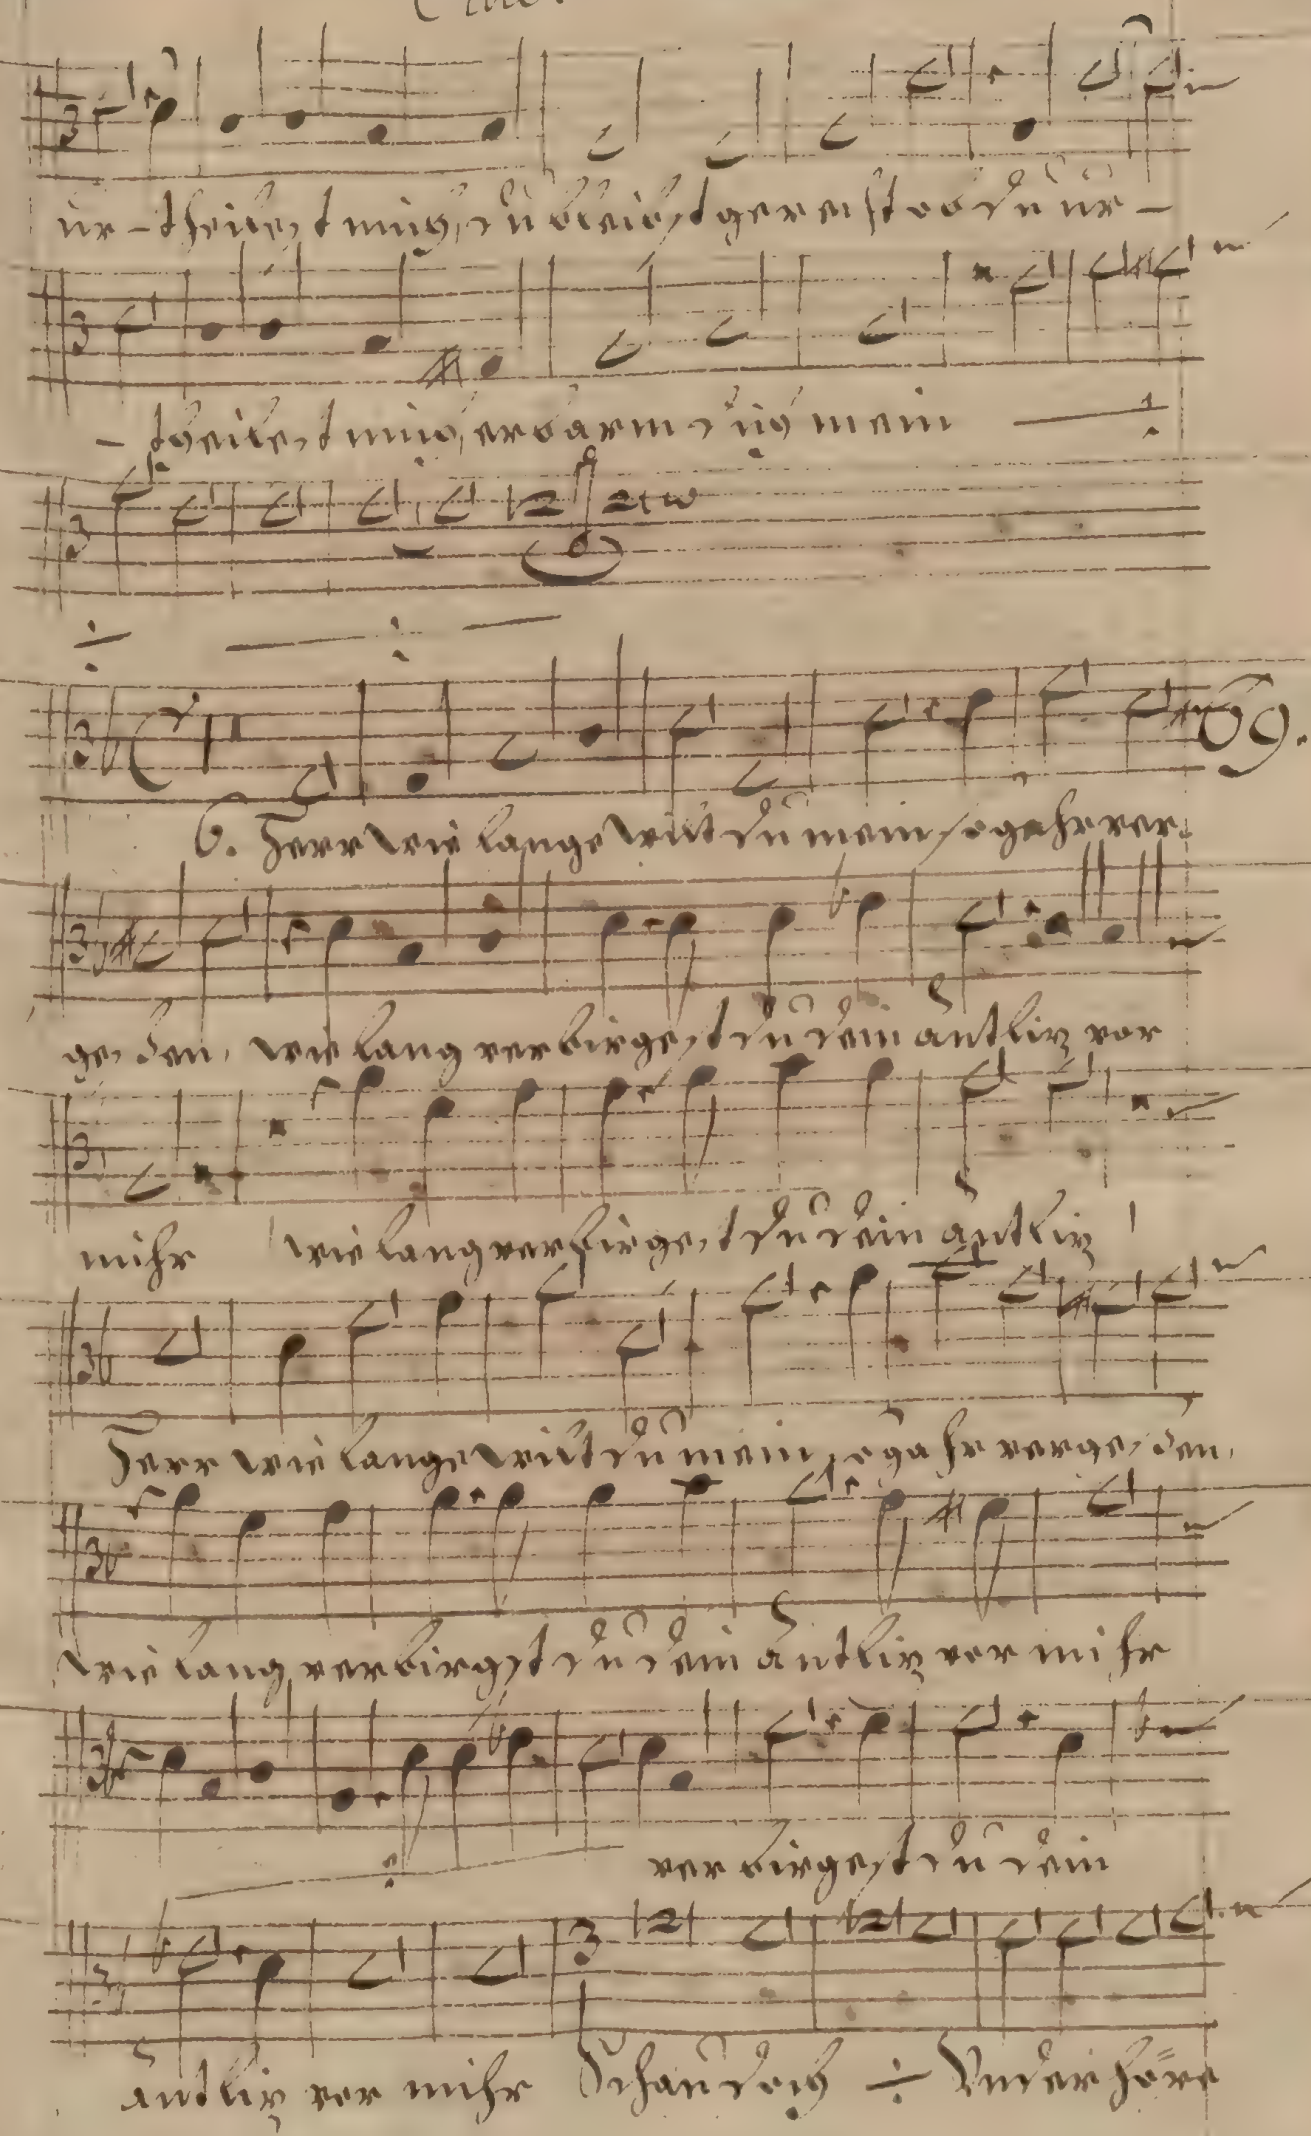 ur - theilest mich, du bleibst gerecht ob du ur -
- theilest mich, erbarm dich mein
69.
6. Herr wie lange wilt du mein so gahr ver-
geßen, wie lang verbirgest du dein antliz vor
mihr wie lang verbirgest du dein antliz
Herr wie lange wilt du mein so gahr vergeßen,
wie lang verbirgst du dein antliz vor mihr
verbirgest du dein
antliz vor mihr Schau doch ÷ Und erhöre